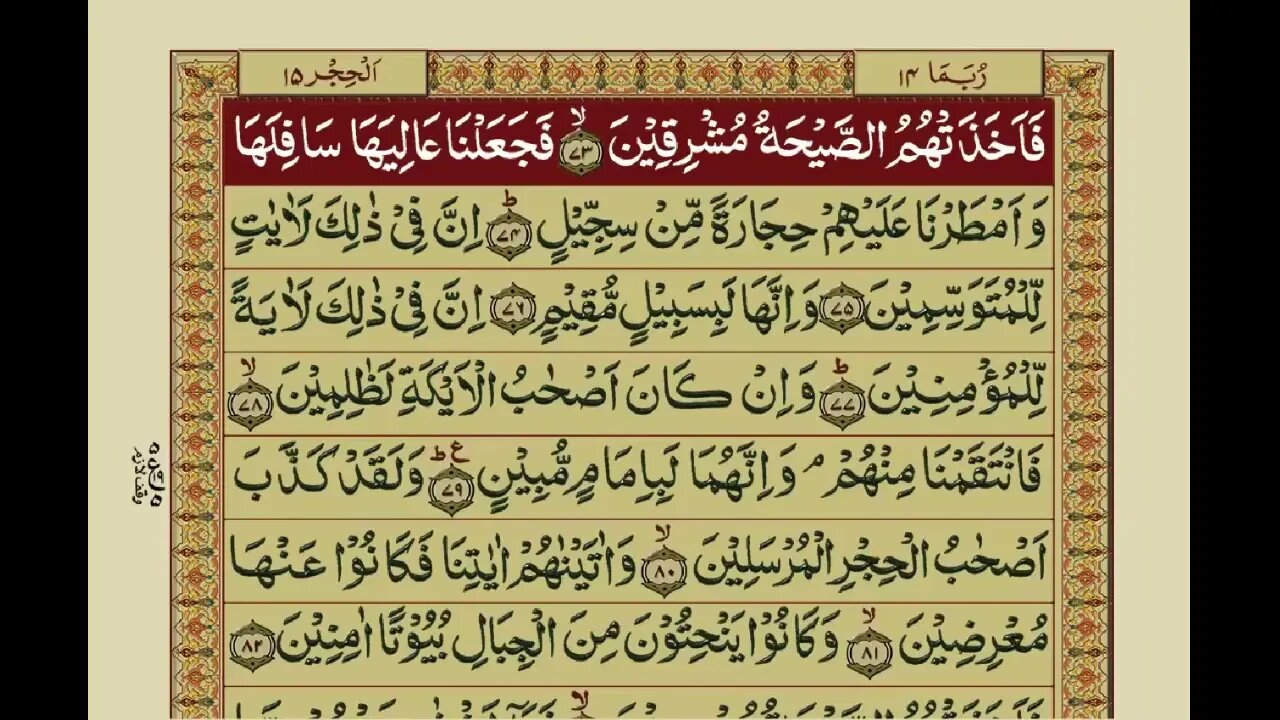 رُبَمَا ۱۴
اَلْحِجْر ۱۵
فَاَخَذَتْهُمُ الصَّیْحَةُ مُشْرِقِیْنَ ۙ﴿۷۳﴾ فَجَعَلْنَا عَالِیَهَا سَافِلَهَا
وَ اَمْطَرْنَا عَلَیْهِمْ حِجَارَةً مِّنْ سِجِّیْلٍ ؕ﴿۷۴﴾ اِنَّ فِیْ ذٰلِكَ لَاٰیٰتٍ
لِّلْمُتَوَسِّمِیْنَ ﴿۷۵﴾ وَ اِنَّهَا لَبِسَبِیْلٍ مُّقِیْمٍ ﴿۷۶﴾ اِنَّ فِیْ ذٰلِكَ لَاٰیَةً
لِّلْمُؤْمِنِیْنَ ؕ﴿۷۷﴾ وَ اِنْ كَانَ اَصْحٰبُ الْاَیْكَةِ لَظٰلِمِیْنَ ۙ﴿۷۸﴾
فَانْتَقَمْنَا مِنْهُمْ ۘ وَ اِنَّهُمَا لَبِاِمَامٍ مُّبِیْنٍ ؕع﴿۷۹﴾ وَ لَقَدْ كَذَّبَ
اَصْحٰبُ الْحِجْرِ الْمُرْسَلِیْنَ ۙ﴿۸۰﴾ وَ اٰتَیْنٰهُمْ اٰیٰتِنَا فَكَانُوْا عَنْهَا
مُعْرِضِیْنَ ۙ﴿۸۱﴾ وَ كَانُوْا یَنْحِتُوْنَ مِنَ الْجِبَالِ بُیُوْتًا اٰمِنِیْنَ ﴿۸۲﴾
وقف لازم